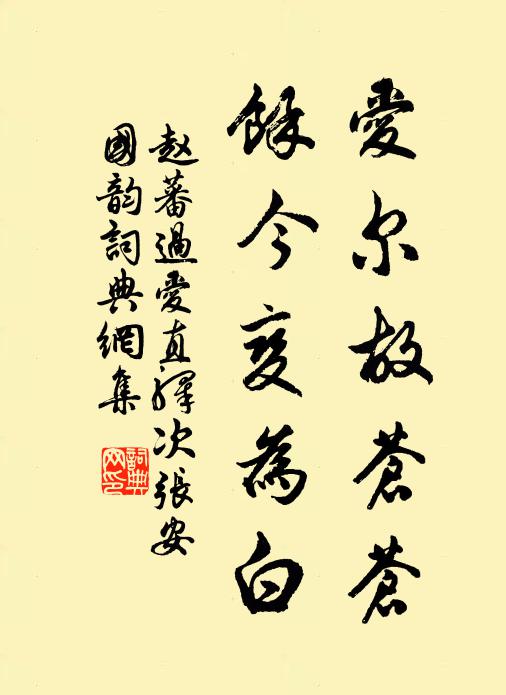 愛尔故蒼蒼
餘今变為白
赵蕃過愛直驛次張安
國韵詞典網集
詞典
网印